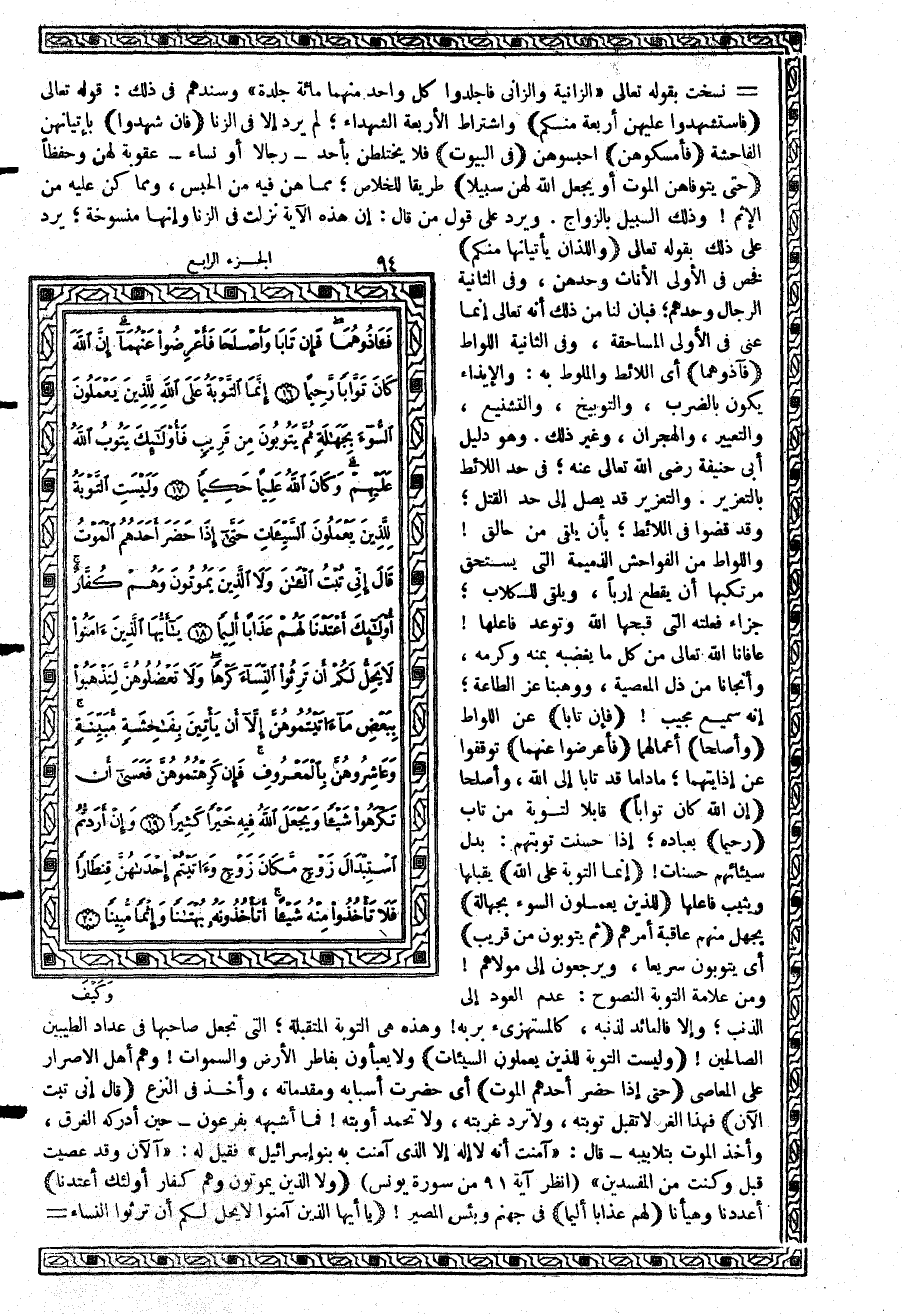 = نسخت بقوله تعالى «الزانية والزانى فاجلدوا كل واحد منهما مائة جلدة» وسندهم فى ذلك : قوله تعالى
(فاستشهدوا عليهن أربعة منكم) واشتراط الأربعة الشهداء ؛ لم يرد إلا فى الزنا (فان شهدوا) بإتيانهن
الفاحشة (فأمسكوهن) احبسوهن (فى البيوت) فلا يختلطن بأحد ــ رجالا أو نساء ــ عقوبة لهن وحفظاً
(حتى يتوفاهن الموت أو يجعل الله لهن سبيلا) طريقا للخلاص ؛ مما هن فيه من الحبس ، ومما كن عليه من
الإثم ! وذلك السبيل بالزواج . ويرد على قول من قال : إن هذه الآية نزلت فى الزنا وإنها منسوخة ؛ يرد
على ذلك بقوله تعالى (واللذان يأتيانها منكم)
فخص فى الأولى الأناث وحدهن ، وفى الثانية
الرجال وحدهم؛ فبان لنا من ذلك أنه تعالى إنما
عنى فى الأولى المساحقة ، وفى الثانية اللواط
(فآذوهما) أى اللائط والملوط به : والإيذاء
يكون بالضرب ، والتوبيخ ، والتشنيع ،
والتعيير ، والهجران ، وغير ذلك . وهو دليل
أبى حنيفة رضى الله تعالى عنه ؛ فى حد اللائط
بالتعزير . والتعزير قد يصل إلى حد القتل ؛
وقد قضوا فى اللائط ؛ بأن يلقى من حالق !
واللواط من الفواحش الذميمة التى يستحق
مرتكبها أن يقطع إرباً ، ويلقى للكلاب ؛
جزاء فعلته التى قبحها الله وتوعد فاعلها !
عافانا الله تعالى من كل ما يغضبه بمنه وكرمه ،
وأنجانا من ذل المعصية ، ووهبنا عز الطاعة ؛
إنه سميع مجيب ! (فإن تابا) عن اللواط
(وأصلحا) أعمالهما (فأعرضوا عنهما) توقفوا
عن إذايتهما ؛ ماداما قد تابا إلى الله ، وأصلحا
(إن الله كان تواباً) قابلا لتوبة من تاب
(رحيما) بعباده ؛ إذا حسنت توبتهم : بدل
سيئاتهم حسنات! (إنما التوبة على الله) يقبلها
ويثيب فاعلها (للذين يعملون السوء بجهالة)
يجهل منهم عاقبة أمرهم (ثم يتوبون من قريب)
أى يتوبون سريعا ، ويرجعون إلى مولاهم !
ومن علامة التوبة النصوح : عدم العود إلى
الجزء الرابع ٩٤
فَـَٔاذُوهُمَا ۖ فَإِن تَابَا وَأَصْلَحَا فَأَعْرِضُواْ عَنْهُمَآ ۗ إِنَّ ٱللَّهَ
كَانَ تَوَّابًا رَّحِيمًا ⑯ إِنَّمَا ٱلتَّوْبَةُ عَلَى ٱللَّهِ لِلَّذِينَ يَعْمَلُونَ
ٱلسُّوٓءَ بِجَهَٰلَةٍ ثُمَّ يَتُوبُونَ مِن قَرِيبٍ فَأُوْلَٰٓئِكَ يَتُوبُ ٱللَّهُ
عَلَيْهِمْ ۗ وَكَانَ ٱللَّهُ عَلِيمًا حَكِيمًا ⑰ وَلَيْسَتِ ٱلتَّوْبَةُ
لِلَّذِينَ يَعْمَلُونَ ٱلسَّيِّـَٔاتِ حَتَّىٰٓ إِذَا حَضَرَ أَحَدَهُمُ ٱلْمَوْتُ
قَالَ إِنِّى تُبْتُ ٱلْـَٰٔنَ وَلَا ٱلَّذِينَ يَمُوتُونَ وَهُمْ كُفَّارٌ ۚ
أُوْلَٰٓئِكَ أَعْتَدْنَا لَهُمْ عَذَابًا أَلِيمًا ⑱ يَٰٓأَيُّهَا ٱلَّذِينَ ءَامَنُواْ
لَا يَحِلُّ لَكُمْ أَن تَرِثُواْ ٱلنِّسَآءَ كَرْهًا ۖ وَلَا تَعْضُلُوهُنَّ لِتَذْهَبُواْ
بِبَعْضِ مَآ ءَاتَيْتُمُوهُنَّ إِلَّآ أَن يَأْتِينَ بِفَٰحِشَةٍ مُّبَيِّنَةٍ ۚ
وَعَاشِرُوهُنَّ بِٱلْمَعْرُوفِ ۚ فَإِن كَرِهْتُمُوهُنَّ فَعَسَىٰٓ أَن
تَكْرَهُواْ شَيْـًٔا وَيَجْعَلَ ٱللَّهُ فِيهِ خَيْرًا كَثِيرًا ⑲ وَإِنْ أَرَدتُّمُ
ٱسْتِبْدَالَ زَوْجٍ مَّكَانَ زَوْجٍ وَءَاتَيْتُمْ إِحْدَىٰهُنَّ قِنطَارًا
فَلَا تَأْخُذُواْ مِنْهُ شَيْـًٔا ۚ أَتَأْخُذُونَهُۥ بُهْتَٰنًا وَإِثْمًا مُّبِينًا ⑳
وَكَيْفَ
الذنب ؛ وإلا فالعائد لذنبه ، كالمستهزىء بربه! وهذه هى التوبة المتقبلة ؛ التى تجعل صاحبها فى عداد الطيبين
الصالحين ! (وليست التوبة للذين يعملون السيئات) ولايعبأون بفاطر الأرض والسموات ! وهم أهل الاصرار
على المعاصى (حتى إذا حضر أحدهم الموت) أى حضرت أسبابه ومقدماته ، وأخذ فى النزع (قال إنى تبت
الآن) فهذا الغر لاتقبل توبته ، ولاترد غربته ، ولا تحمد أوبته ! فما أشبهه بفرعون ــ حين أدركه الغرق ،
وأخذ الموت بتلابيبه ــ قال : «آمنت أنه لاإله إلا الذى آمنت به بنوإسرائيل» فقيل له : «آلآن وقد عصيت
قبل وكنت من المفسدين» (انظر آية ٩١ من سورة يونس) (ولا الذين يموتون وهم كفار أولئك أعتدنا)
أعددنا وهيأنا (لهم عذابا أليما) فى جهنم وبئس المصير ! (يا أيها الذين آمنوا لايحل لكم أن ترثوا النساء =